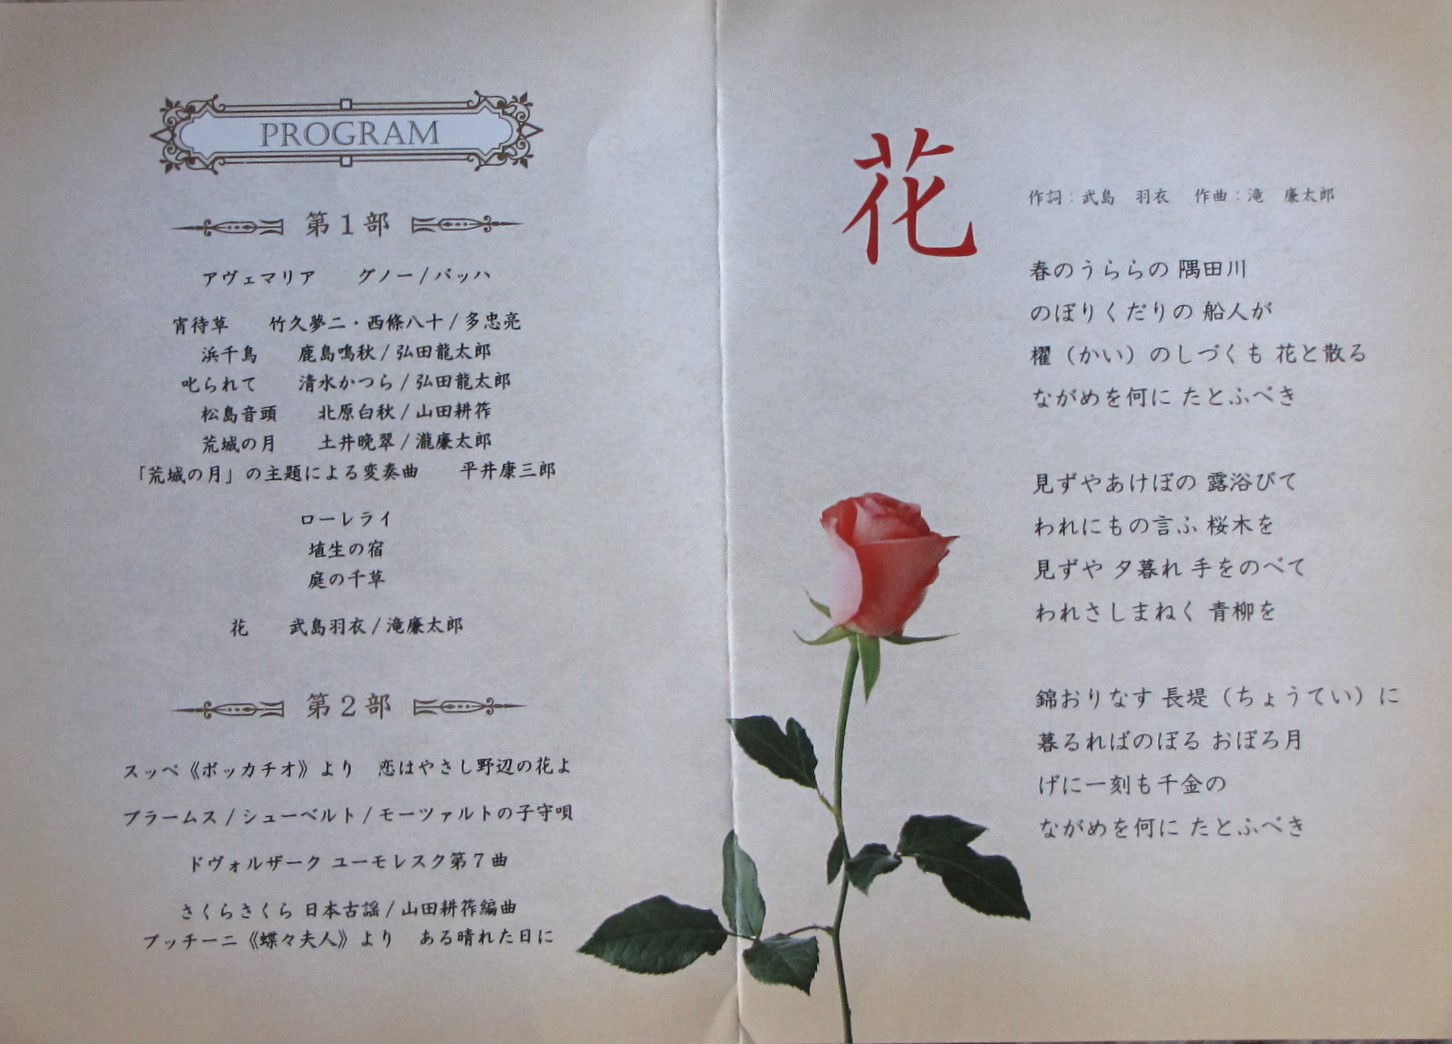 PROGRAM
第1部
アヴェマリア　グノー/バッハ
宵待草　竹久夢二・西條八十/多忠亮
浜千鳥　鹿島鳴秋/弘田龍太郎
叱られて　清水かつら/弘田龍太郎
松島音頭　北原白秋/山田耕筰
荒城の月　土井晩翠/瀧廉太郎
「荒城の月」の主題による変奏曲　平井康三郎
ローレライ
埴生の宿
庭の千草
花　武島羽衣/滝廉太郎
第2部
スッペ《ボッカチオ》より　恋はやさし野辺の花よ
ブラームス/シューベルト/モーツァルトの子守唄
ドヴォルザーク ユーモレスク第7曲
さくらさくら 日本古謡/山田耕筰編曲
プッチーニ《蝶々夫人》より　ある晴れた日に
花
作詞：武島　羽衣　作曲：滝　廉太郎
春のうららの 隅田川
のぼりくだりの 船人が
櫂（かい）のしづくも 花と散る
ながめを何に たとふべき
見ずやあけぼの 露浴びて
われにもの言ふ 桜木を
見ずや 夕暮れ 手をのべて
われさしまねく 青柳を
錦おりなす 長堤（ちょうてい）に
暮るればのぼる おぼろ月
げに一刻も千金の
ながめを何に たとふべき